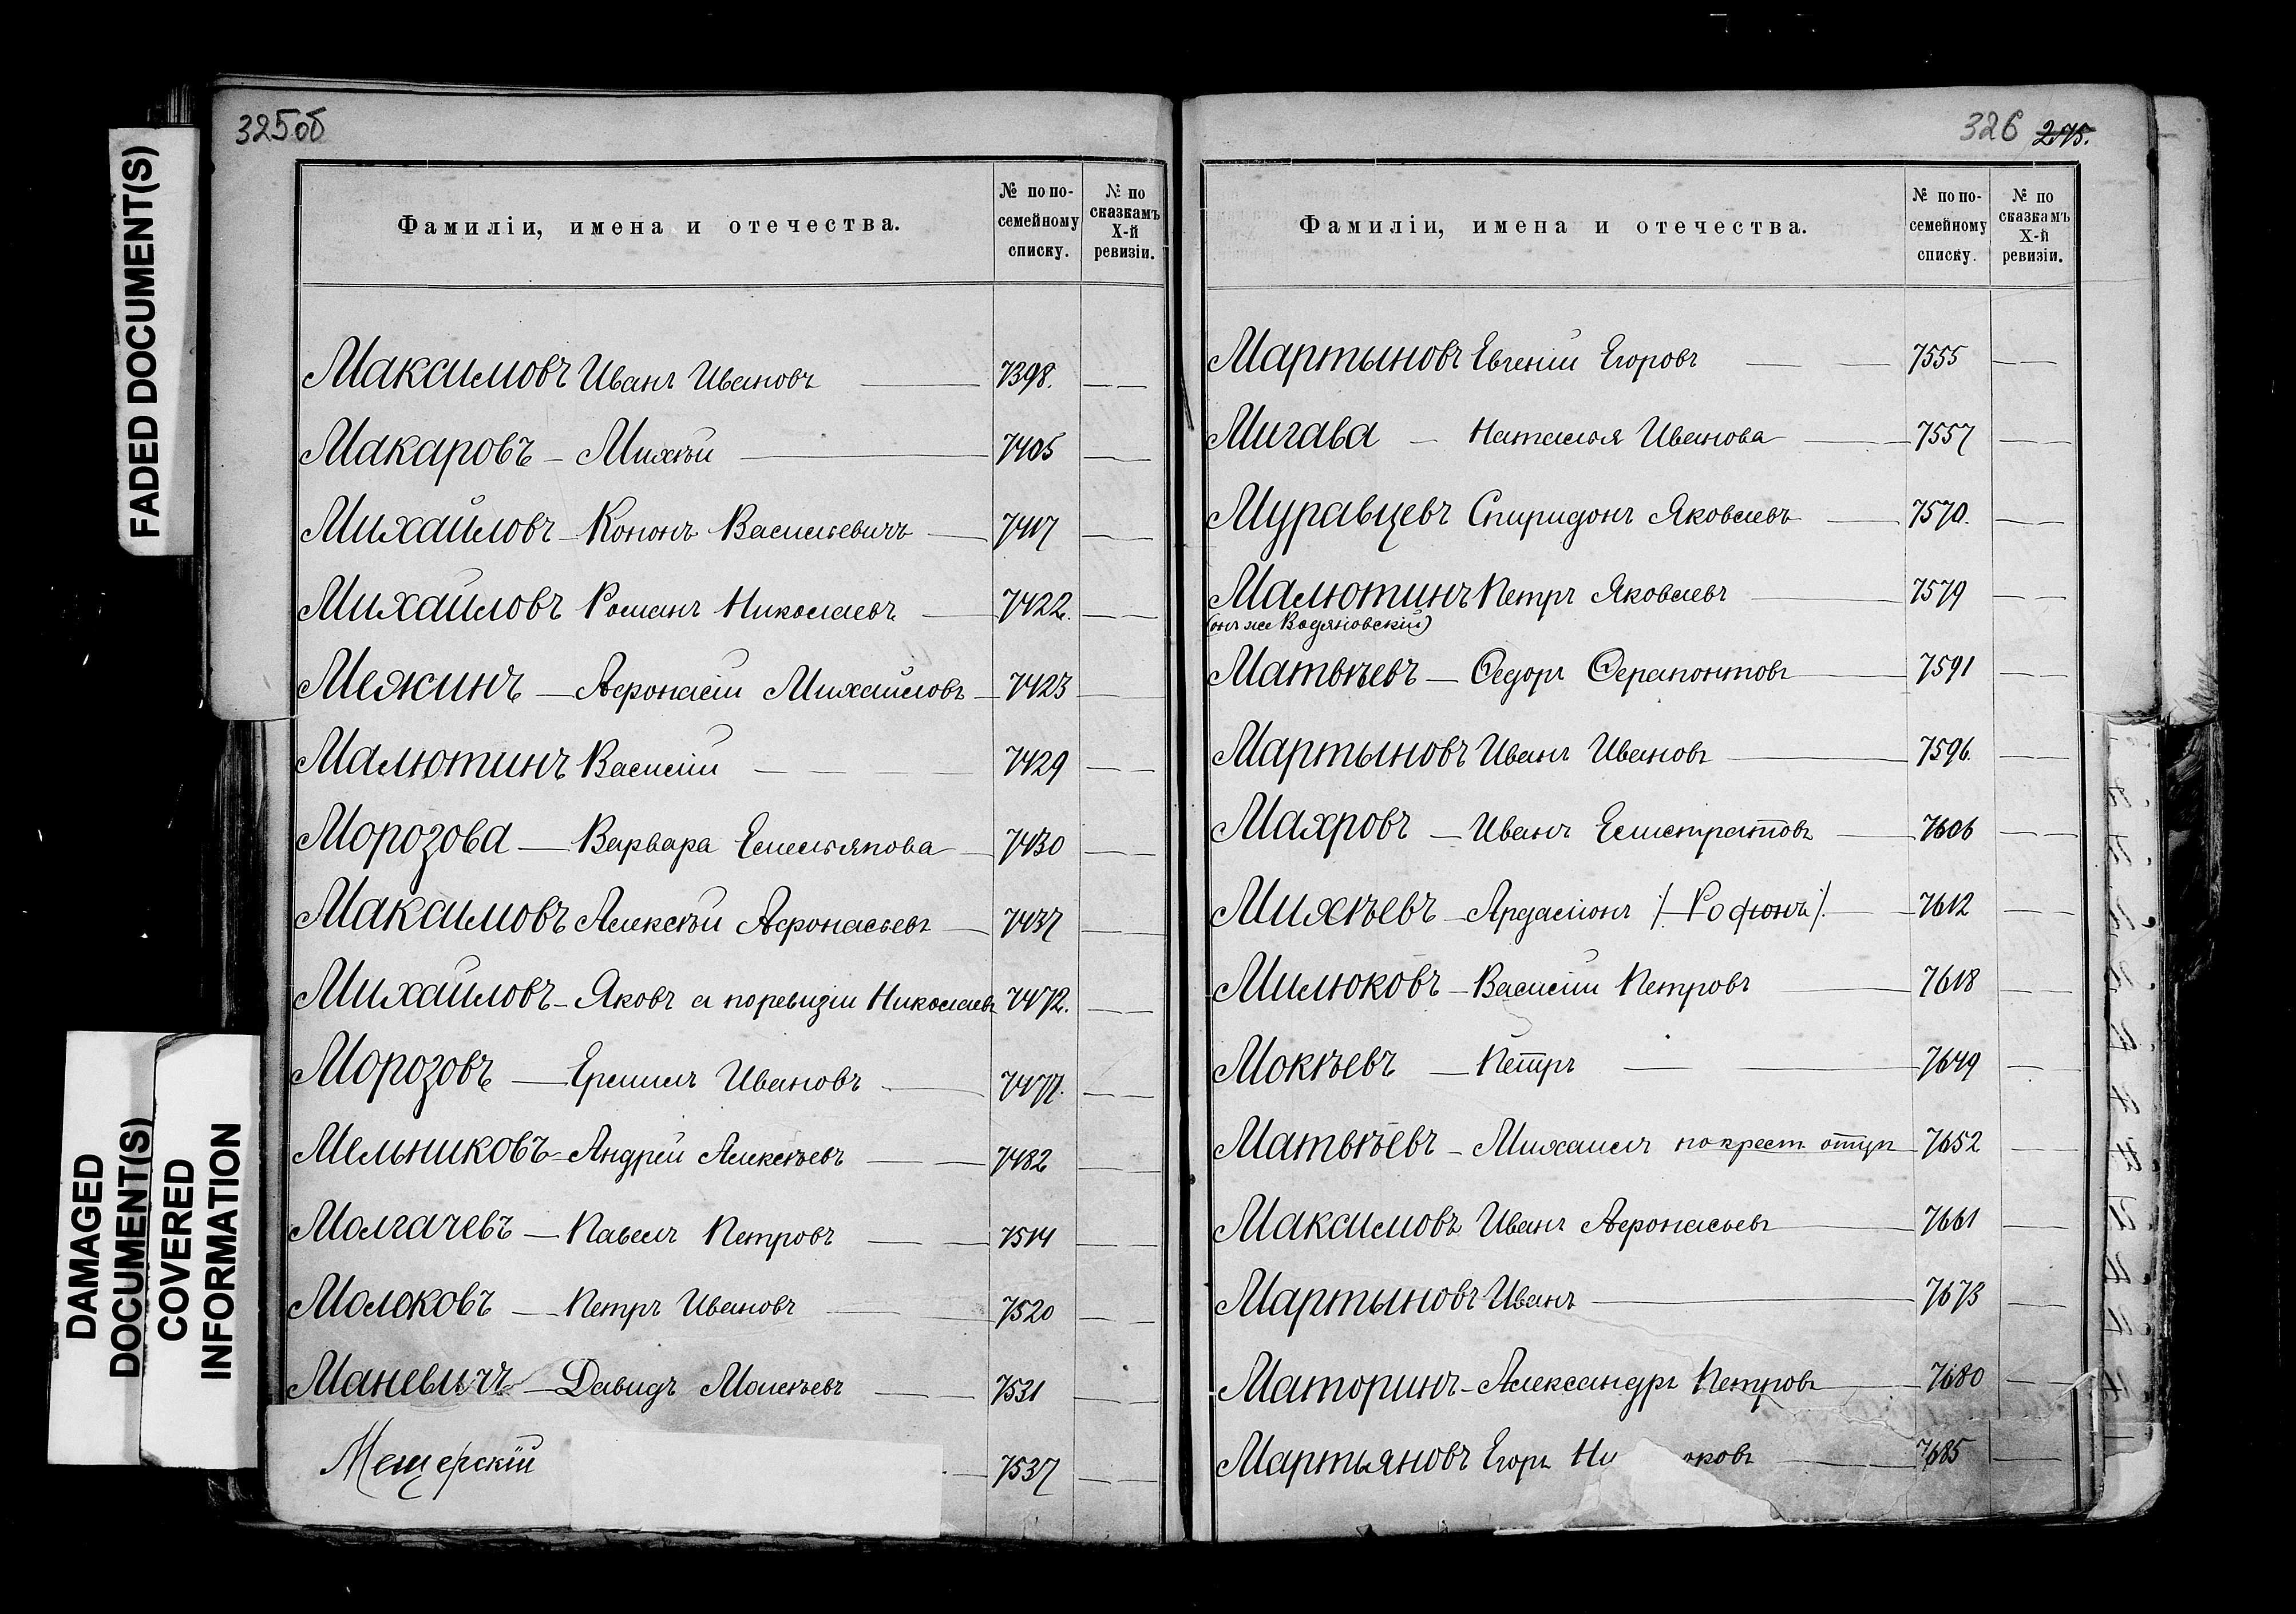 FADED DOCUMENT(S)
DAMAGED
DOCUMENT(S)
COVERED
INFORMATION
325об
Фамиліи, имена и отечества.
№ по по-
семейному
списку.
№ по
сказкамъ
X-й
ревизіи.
Максимовъ Иванъ Ивановъ 7398.
Макаровъ - Михѣй 7405
Михайловъ - Кононъ Васильевичъ 7417
Михайловъ Романъ Николаевъ 7422.
Межинъ - Афонасій Михайловъ 7423
Малютинъ Василій 7429
Морозова - Варвара Емельянова 7430
Максимовъ Алексѣй Афонасьевъ 7437
Михайловъ - Яковъ а поревизіи Николаевъ 7472.
Морозовъ - Ермилъ Ивановъ 7477.
Мельниковъ - Андрей Алексѣевъ 7482
Молгачевъ - Павелъ Петровъ 7514
Молоковъ - Петръ Ивановъ 7520
Маневичъ - Давидъ Моисѣевъ 7531
Мещерскій 7537
326 275.
Фамиліи, имена и отечества.
№ по по-
семейному
списку.
№ по
сказкамъ
X-й
ревизіи.
Мартыновъ Евгеній Егоровъ 7555
Мигава - Наталья Иванова 7557
Муравцевъ Спиридонъ Яковлевъ 7570.
Малютинъ Петръ Яковлевъ 7579
(онъ же Водяновскій)
Матвѣевъ - Ѳедоръ Ѳерапонтовъ 7591
Мартыновъ Иванъ Ивановъ 7596.
Махровъ - Иванъ Елистратовъ 7606
Михѣевъ - Ардаліонъ /: Рофіонъ :/ 7612
Милюковъ - Василій Петровъ 7618
Мокѣевъ - Петръ 7649
Матвѣевъ - Михаилъ по крест. отцу 7652
Максимовъ Иванъ Афонасьевъ 7661
Мартыновъ Иванъ 7673
Маторинъ - Александръ Петровъ 7680
Мартьяновъ Егоръ 7685